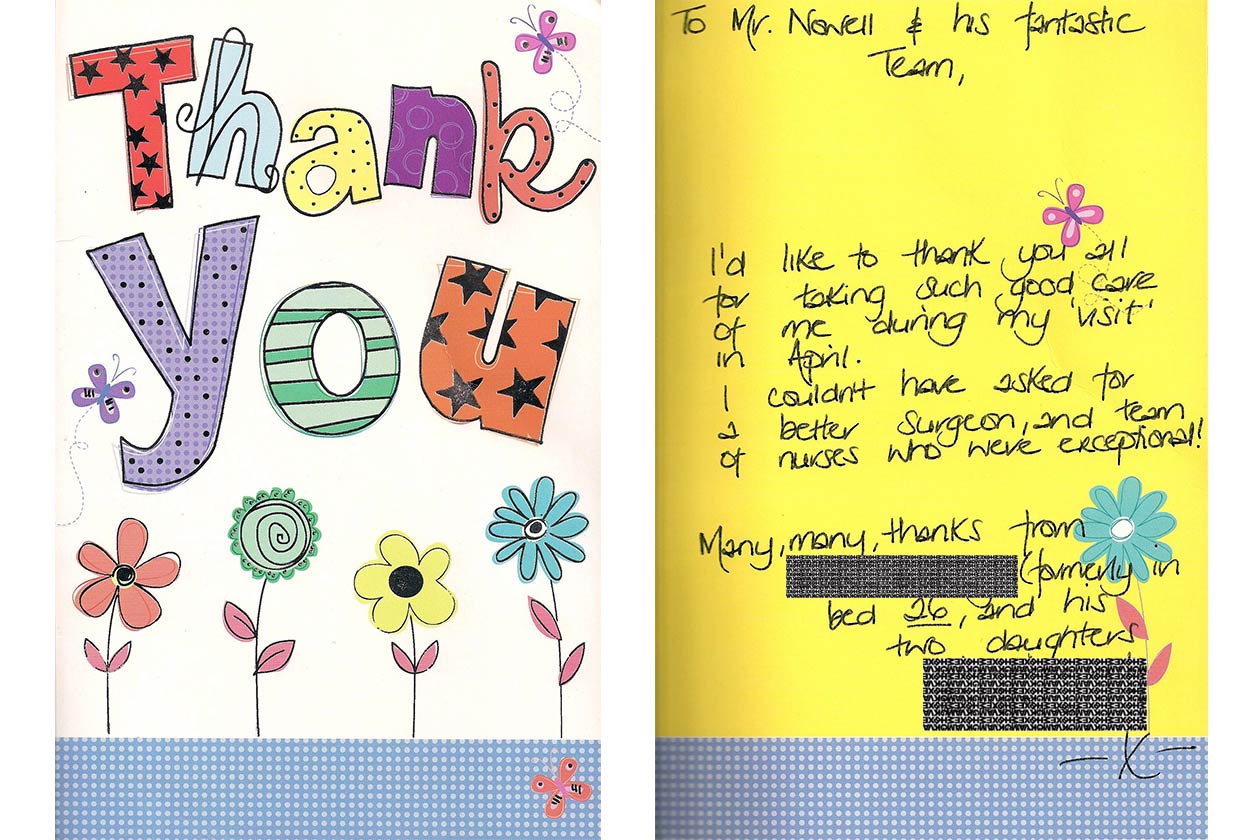 Thank
you
To Mr. Nowell & his fantastic
Team,
I'd like to thank you all
for taking such good care
of me during my 'visit'
in April.
I couldn't have asked for
a better surgeon, and team
of nurses who were exceptional!
Many, many, thanks from
(formerly in
bed 26, and his
two daughters
-X-